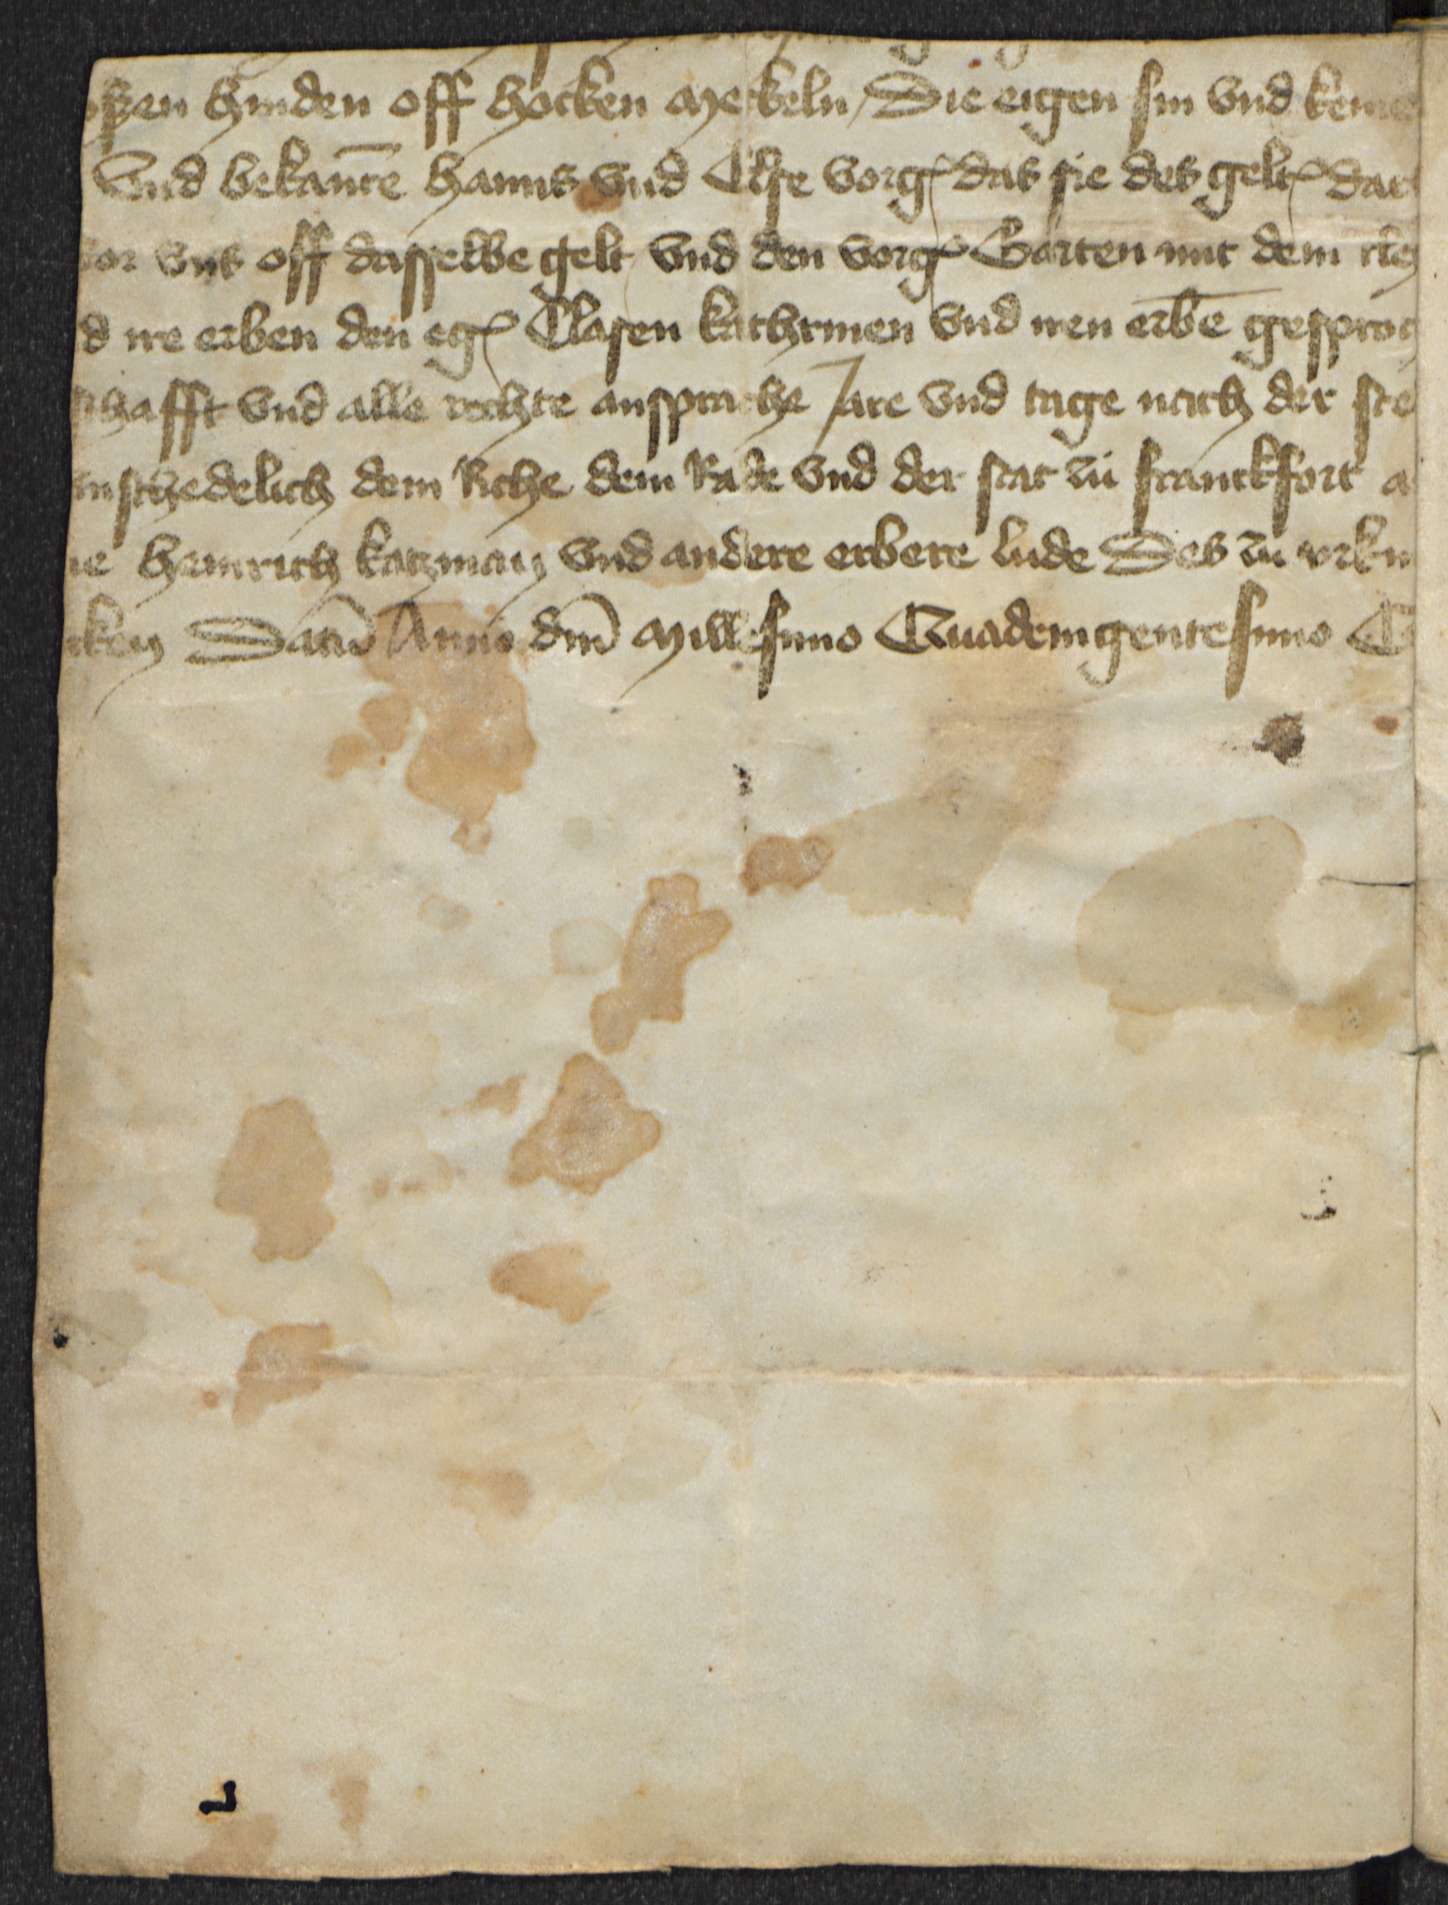 ßen hinden off hocken Meckeln / Die eigen sin vnd keine
Vnd bekan̄te hanns vnd Else vorg̃ das sie des gelt̃ dar
vor vns off dasselbe gelt vnd den vorg̃ Garten mit dem
d ire erben den eg̃ Clasen kathrinen vnd iren erbē gesproch
schafft vnd alle rechte ansprache Jare vnd tage nach der ste
vnschedelich dem Riche dem Rade vnd der stat zu franckfort a
ie heinrich katzman vnd andere erbere lude Des zu vrkun
cken Datū Anno dm̄ Millesimo Quadringentesimo